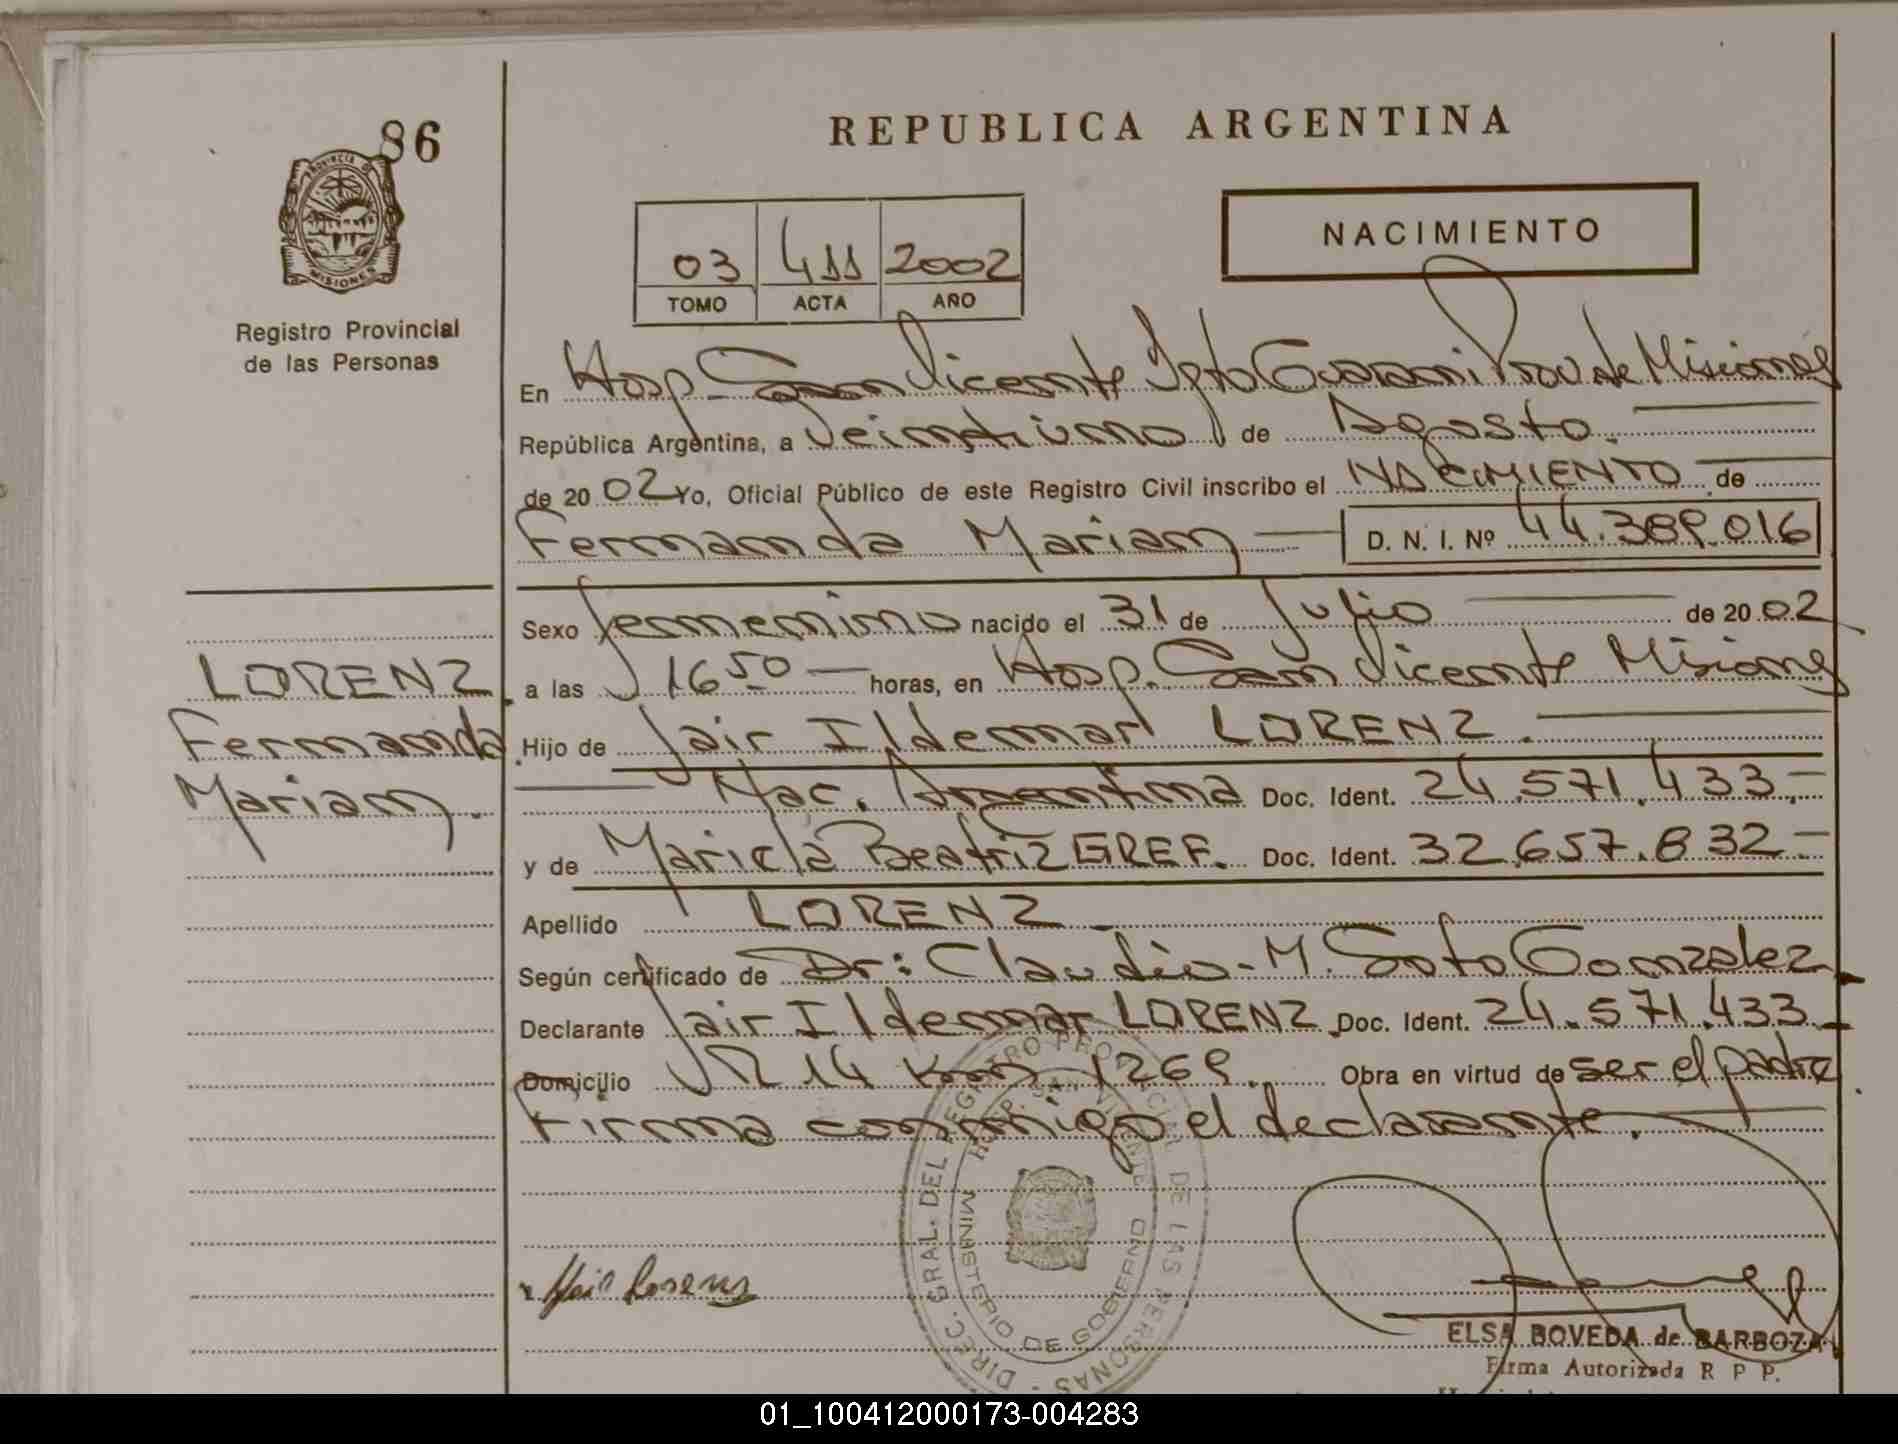 86
PROVINCIA DE
MISIONES
Registro Provincial
de las Personas
REPUBLICA ARGENTINA
03 411 2002
TOMO ACTA AÑO
NACIMIENTO
En Hosp. San Vicente Dpto Guarani Prov de Misiones
República Argentina, a Veintiuno de Agosto.
de 2002 Yo, Oficial Público de este Registro Civil inscribo el NACIMIENTO de
Fernanda Mariam D. N. I. Nº 44.389.016
Sexo femenino nacido el 31 de Julio de 2002
LORENZ a las 16 50 horas, en Hosp. San Vicente Misiones
Fernanda Hijo de Jair Ildemar LORENZ.
Mariam. Nac. Argentina Doc. Ident. 24.571.433.-
y de Maricla Beatriz GREF. Doc. Ident. 32.657.832-
Apellido LORENZ
Según certificado de Dr: Claudio-M. Soto Gonzalez
Declarante Jair Ildemar LORENZ. Doc. Ident. 24.571.433
Domicilio R 14 Km 1269. Obra en virtud de ser el padre.
Firma conmigo el declarante.
DIREC. GRAL. DEL REGISTRO PROVINCIAL DE LAS PERSONAS -
HOSP. SAN VICENTE
MINISTERIO DE GOBIERNO
Jair Lorenz
ELSA BOVEDA de BARBOZA
Firma Autorizada R P P.
01_100412000173-004283